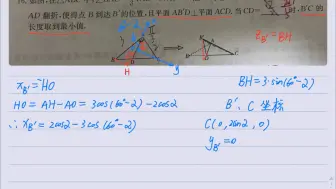 AD 翻折,使得点 B 到达 B'的位置,且平面 AB'D⊥平面 ACD. 当 CD= 时,B'C 的
长度取到最小值.
Z_B' = BH
x_B' = -HO
BH = 3·sin(60°-2)
HO = AH-AO = 3cos(60°-2) - 2cos2
B'、C 坐标
∴ x_B' = 2cos2 - 3cos(60°-2)
C(0, 2sin2, 0)
y_B' = 0